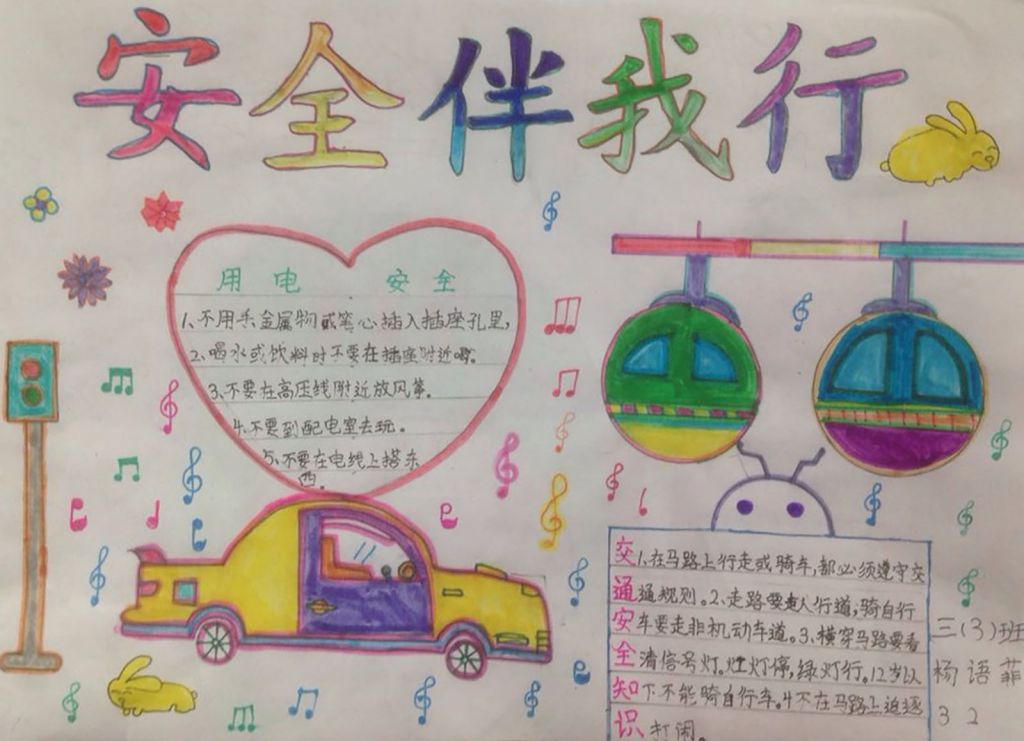 安全伴我行
用电 安全
1、不用手金属物或笔心插入插座孔里,
2、喝水或饮料时不要在插座附近喝。
3、不要在高压线附近放风筝。
4、不要到配电室去玩。
5、不要在电线上搭东
西。
交通安全知识
1、在马路上行走或骑车,都必须遵守交
通规则。2、走路要走人行道,骑自行
车要走非机动车道。3、横穿马路要看
清信号灯。红灯停,绿灯行。12岁以
下不能骑自行车。4不在马路上追逐
打闹。
三(3)班
杨语菲
32